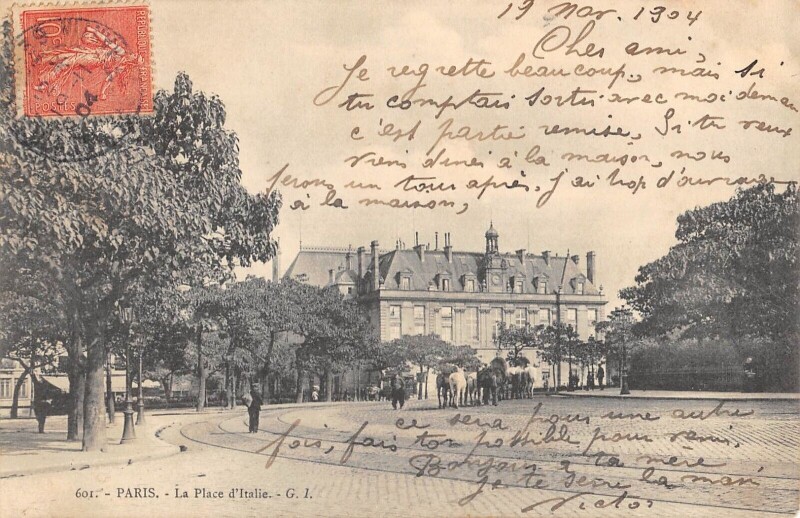 19 Nov. 1904
Cher ami,
Je regrette beaucoup, mais si
tu comptais sortir avec moi demain
c'est partie remise, Si tu veux
viens diner à la maison, nous
ferons un tour après, j'ai trop d'ouvrage
à la maison,
ce sera pour une autre
fois, fais ton possible pour venir.
Bonjour à ta mère
Je te serre la main
Victor
10c
POSTES
REPUBLIQUE
04
601. - PARIS. - La Place d'Italie. - G. I.